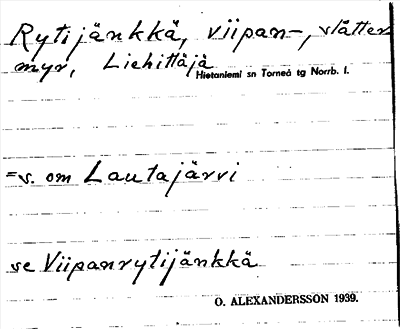 Rytijänkkä, viipan-, slåtter
myr, Liehittäjä
Hietaniemi sn Torneå tg Norrb. l.
=s. om Lautajärvi
se Viipanrytijänkkä
O. ALEXANDERSSON 1939.